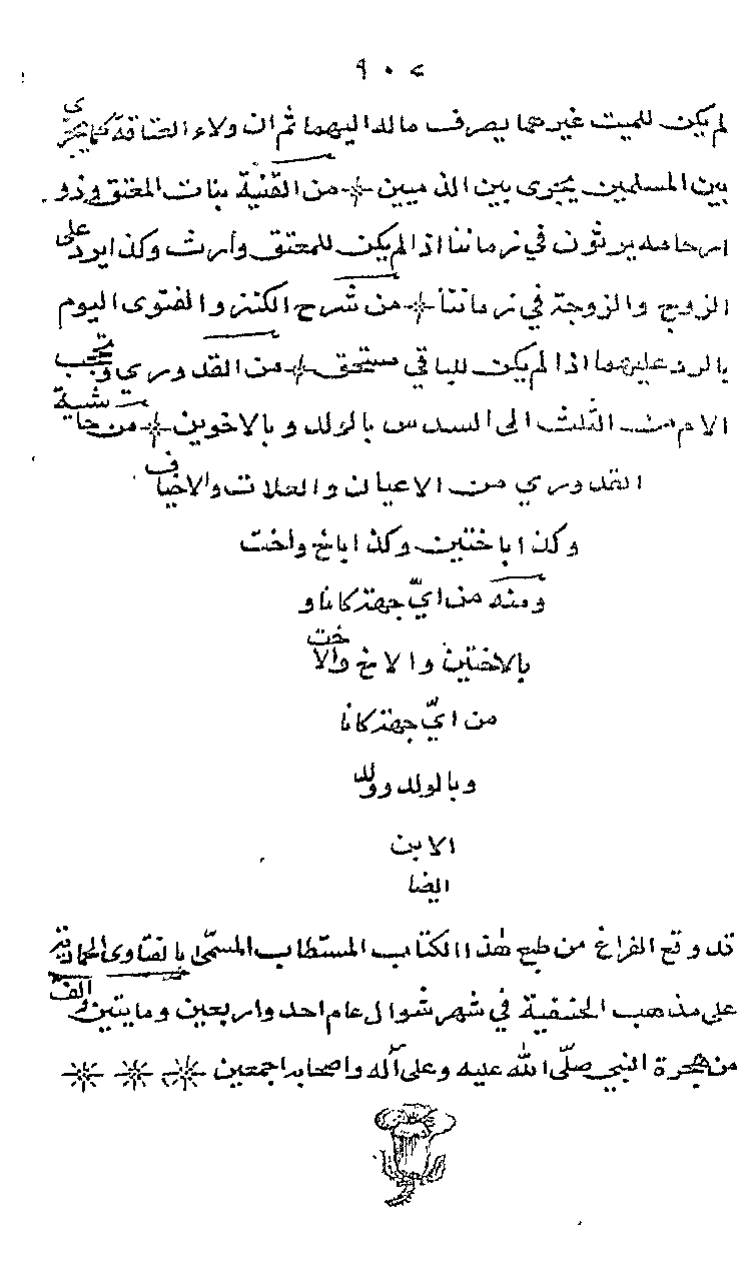 ٩٠٢
لم يكن للميت غيرهما يصرف ماله اليهما ثم ان ولاء العتاقة كما يجرى
بين المسلمين يجرى بين الذميين من القنية بنات المعتق وذو
ارحامه يرثون في زماننا اذا لم يكن للمعتق وارث وكذا يرد على
الزوج والزوجة في زماننا من شرح الكنز والفتوى اليوم
بالرد عليهما اذا لم يكن للباقي مستحق من القدوري وتحجب
الام من الثلث الى السدس بالولد وبالاخوين من حاشية
القدوري من الاعيان والعلات والاخياف
وكذا باختين وكذا باخ واخت
ومنه من ايّ جهة كانا و
بالاختين والاخ والاخت
من ايّ جهة كانا
وبالولد وولد
الابن
ايضا
قد وقع الفراغ من طبع هذا الكتاب المستطاب المسمّى بالفتاوى الحمادية
على مذهب الحنفية في شهر شوال عام احد واربعين ومايتين والف
من هجرة النبي صلّى الله عليه وعلى آله واصحابه اجمعين